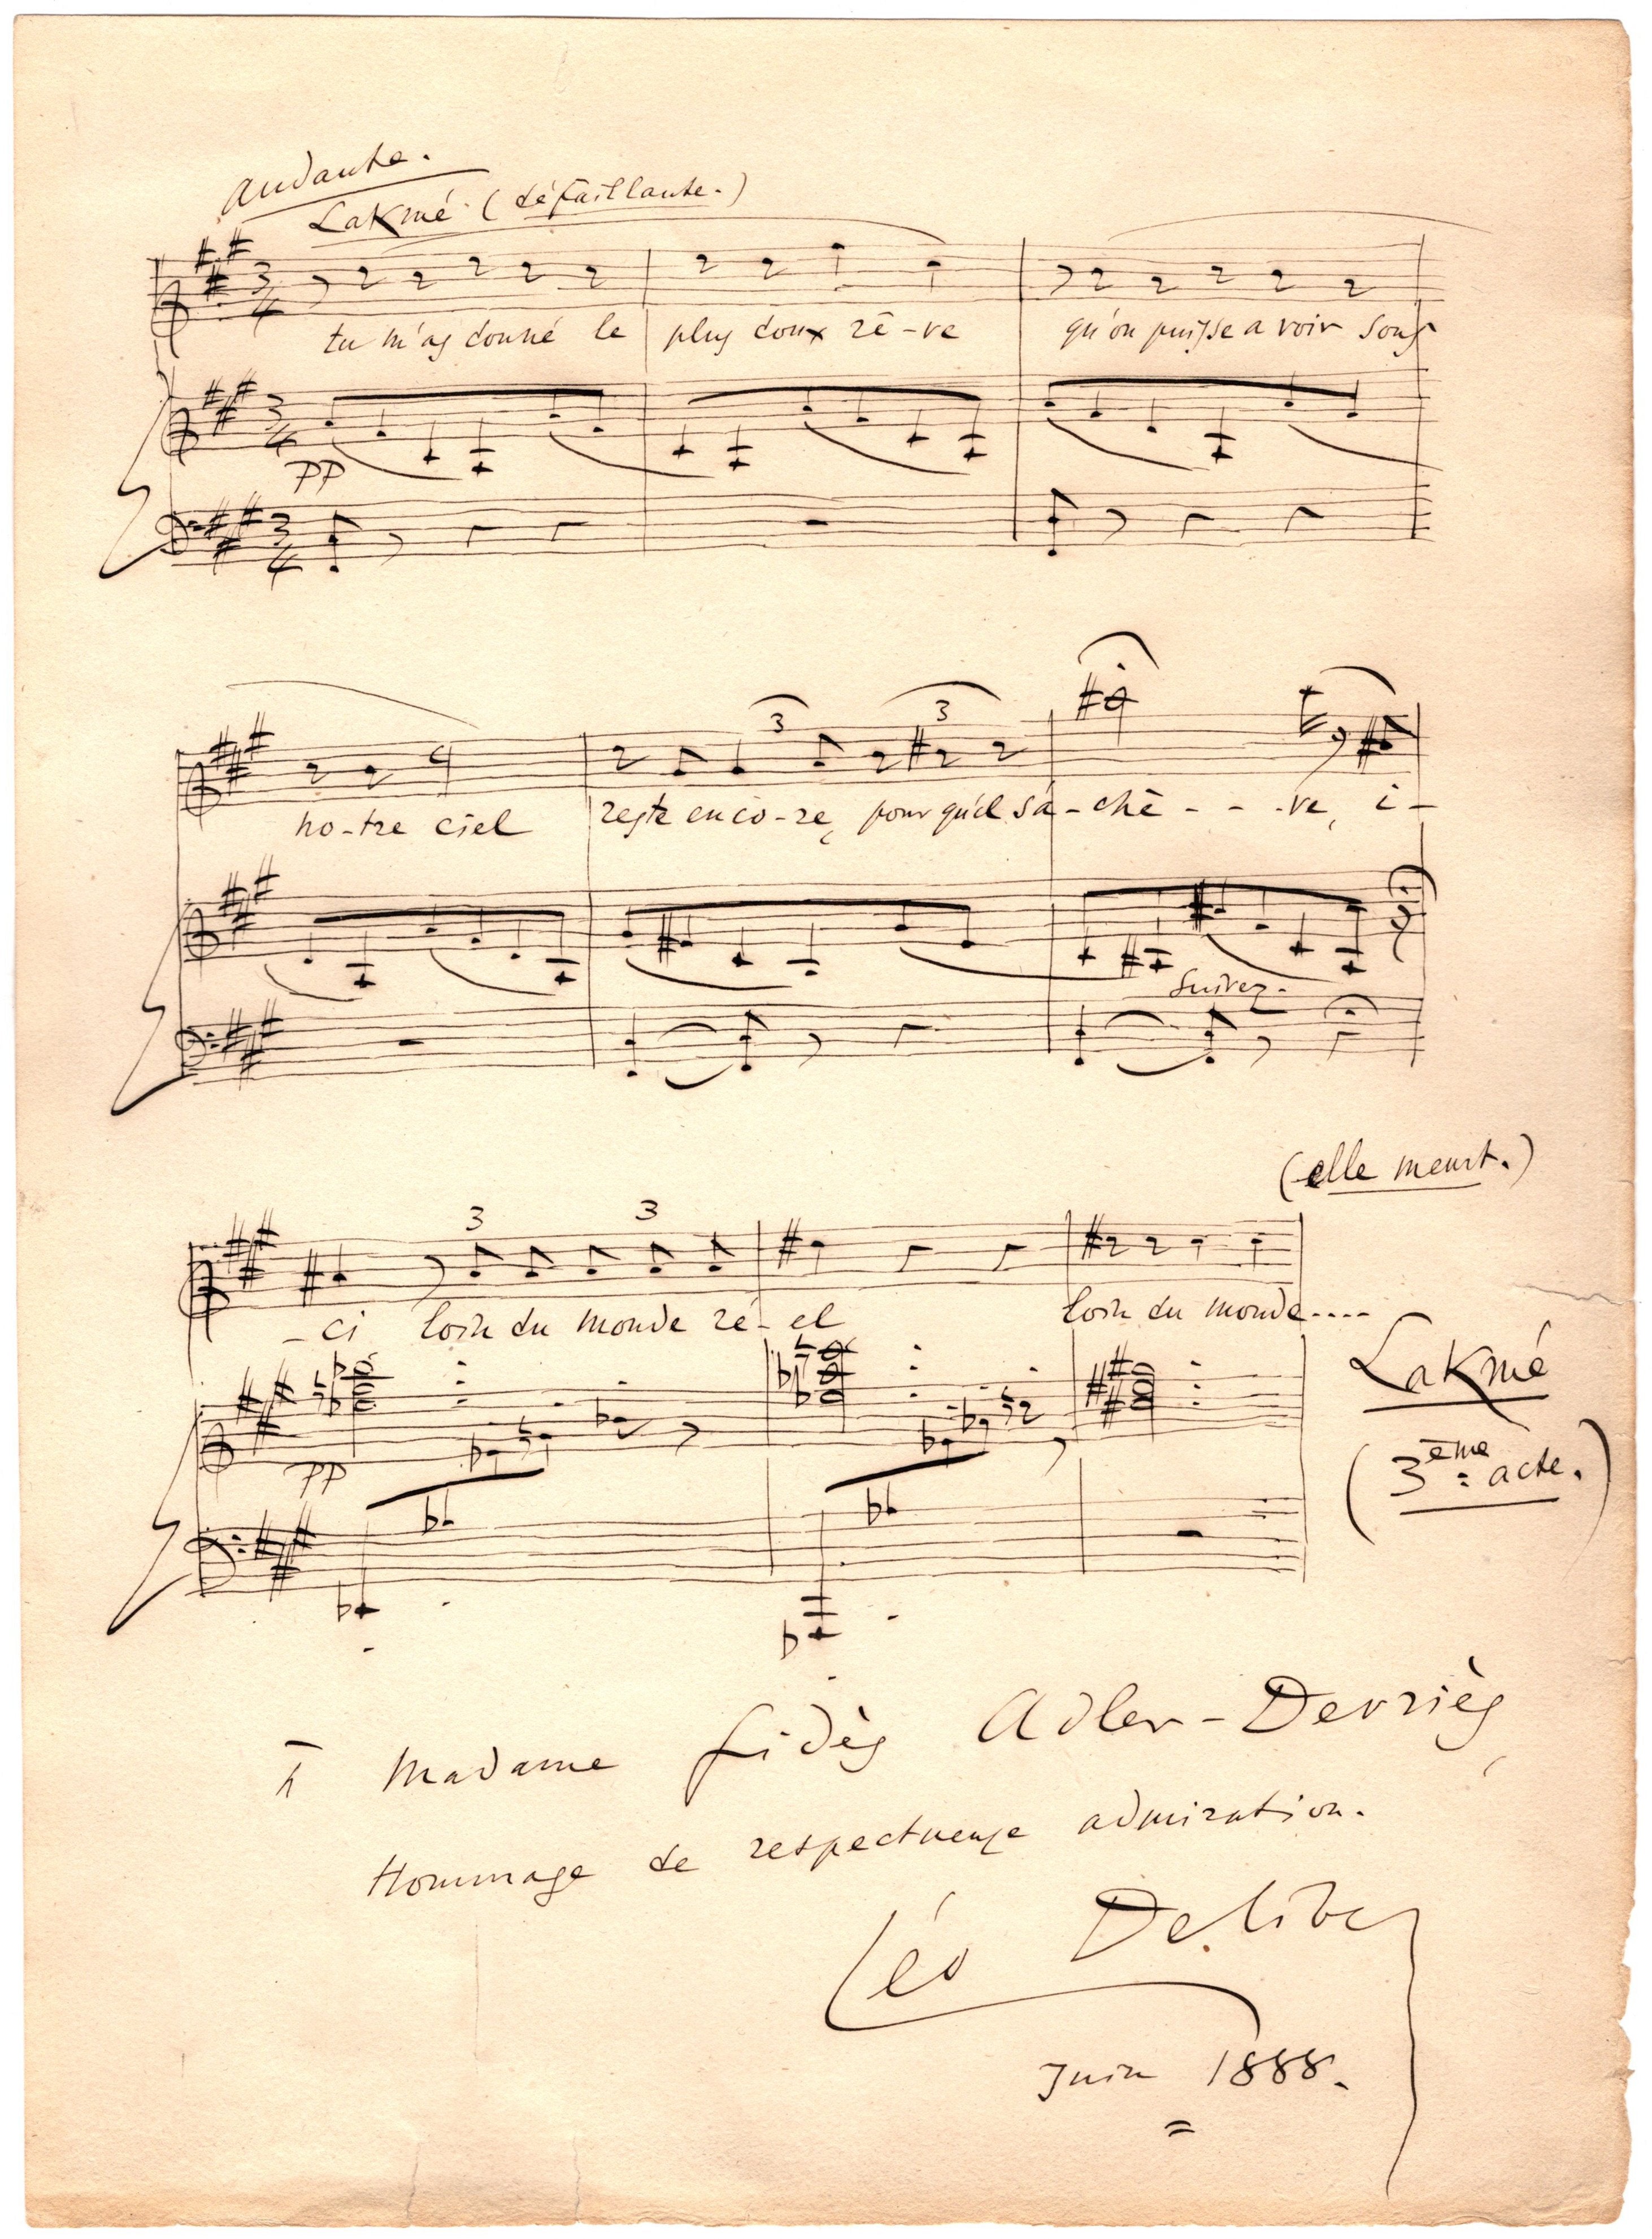 Andante.
Lakmé (défaillante.)
3
4
tu m'as donné le plus doux rê-ve qu'on puisse avoir sous
3
4
pp
3
4
3 3
no-tre ciel reste enco-re, pour qu'il s'a-chê - - -ve, i-
Suivez.
(elle meurt.)
3 3
-ci loin du monde ré-el loin du monde....
Lakmé
pp
(3ème acte.)
À Madame Fidès Adler-Devriès,
Hommage de respectueuse admiration.
Léo Delibes
Juin 1888.